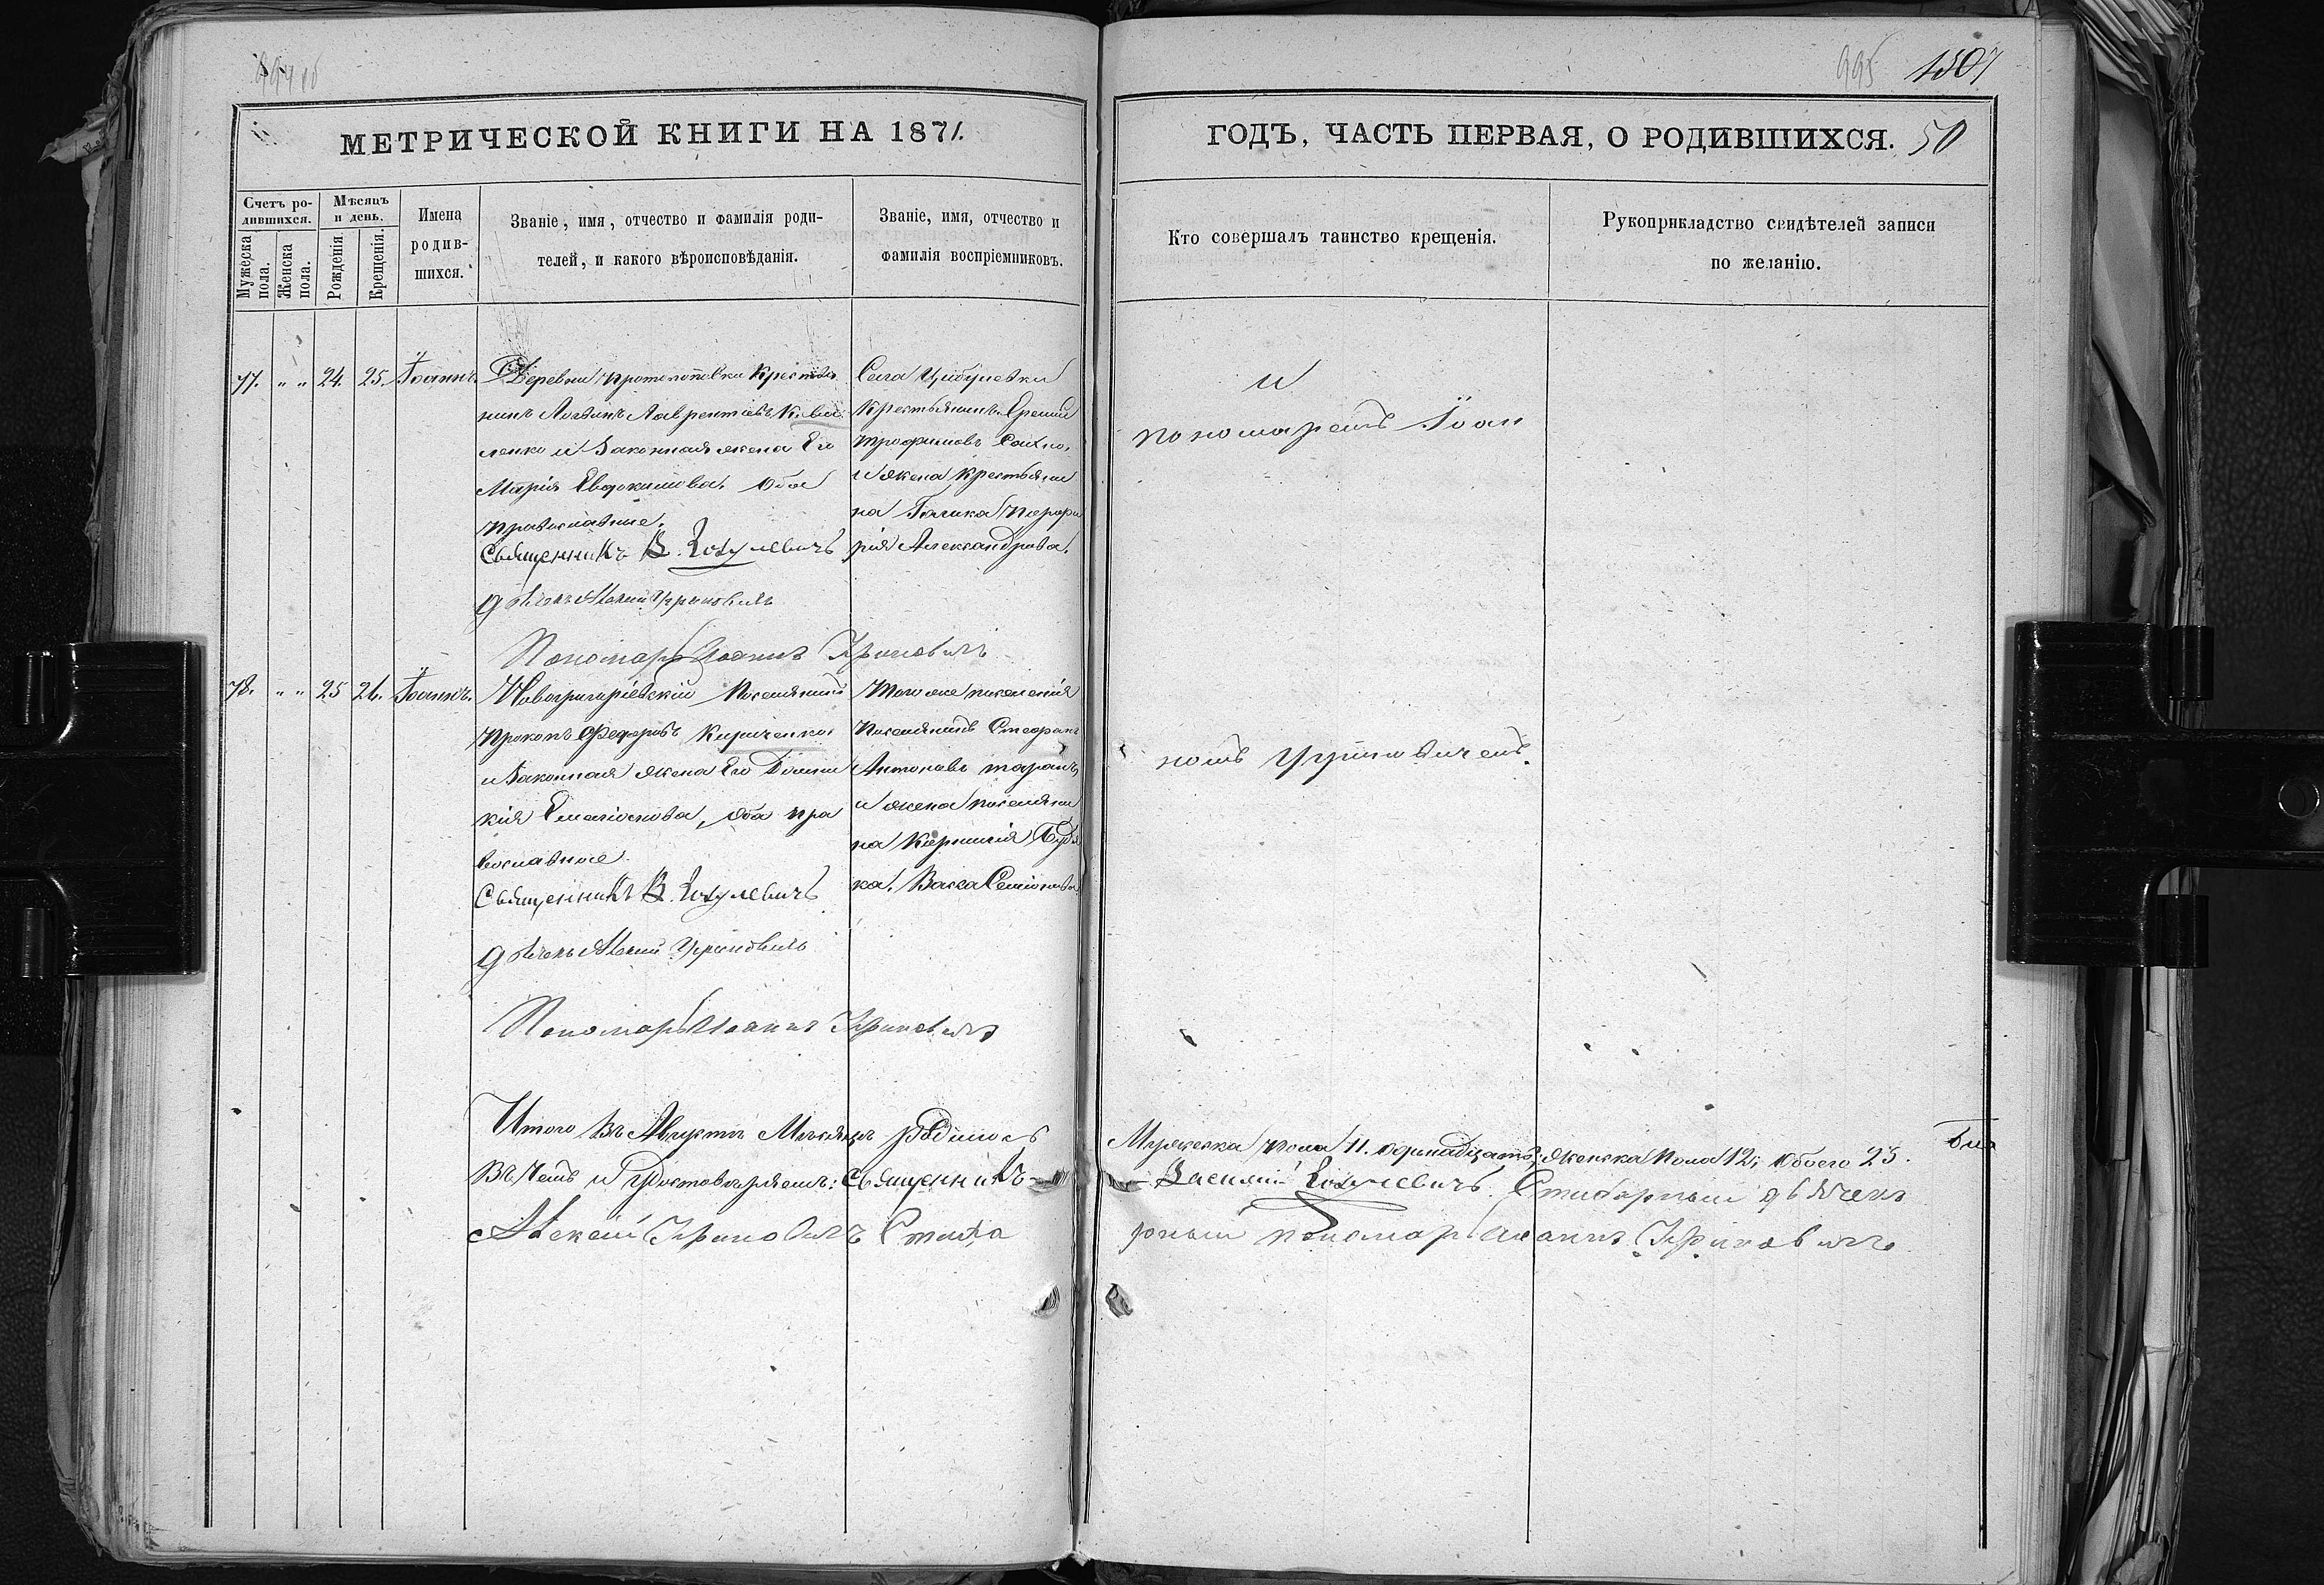 995 1507
МЕТРИЧЕСКОЙ КНИГИ НА 1871.
ГОДЪ, ЧАСТЬ ПЕРВАЯ, О РОДИВШИХСЯ. 50
Счетъ родившихся.
Мужеска пола.
Женска пола.
Мѣсяцъ и день.
Рожденія
Крещенія.
Имена родившихся.
Званіе, имя, отчество и фамилія роди-
телей, и какого вѣроисповѣданія.
Званіе, имя, отчество и
фамилія воспріемниковъ.
Кто совершалъ таинство крещенія.
Рукоприкладство свидѣтелей записи
по желанію.
77. " " 24. 25. Іоаннъ.
Деревни Протопоповки Крестья
нинъ Логвинъ Лаврентіевъ
ленко и Законная жена Его
Марія Евдокимова. Оба
православные.
Священникъ В.
Дьячекъ Алексій
Пономарь Іоаннъ
Села Цибулевки
Крестьянинъ
Трофимовъ Сахно,
и жена крестьяни
на
рія Александрова.
и
пономаремъ Іоан
78. " " 25 26. Іоаннъ.
Новогригоріевскій Поселянинъ
Прокопъ Федоровъ Кириченко
и Законная жена Его Домни
кія Емеліанова, оба пра
вославные
Священникъ В.
Дьячекъ Алексій
Пономарь Іоаннъ
Того же поселенія
Поселянинъ Стефанъ
Антоновъ Таранъ,
и жена поселяни
на Корнилія
ка. Васса Семіонова
номъ
Итого въ Августѣ Мѣсяцѣ родилось
Мужеска пола 11. одинадцать; женска пола 12; обоего 23.
въ чемъ и удостовѣряемъ: Священникъ
Василій
Стихарный дьячекъ
Алексій
Стиха
рный пономарь Іоаннъ